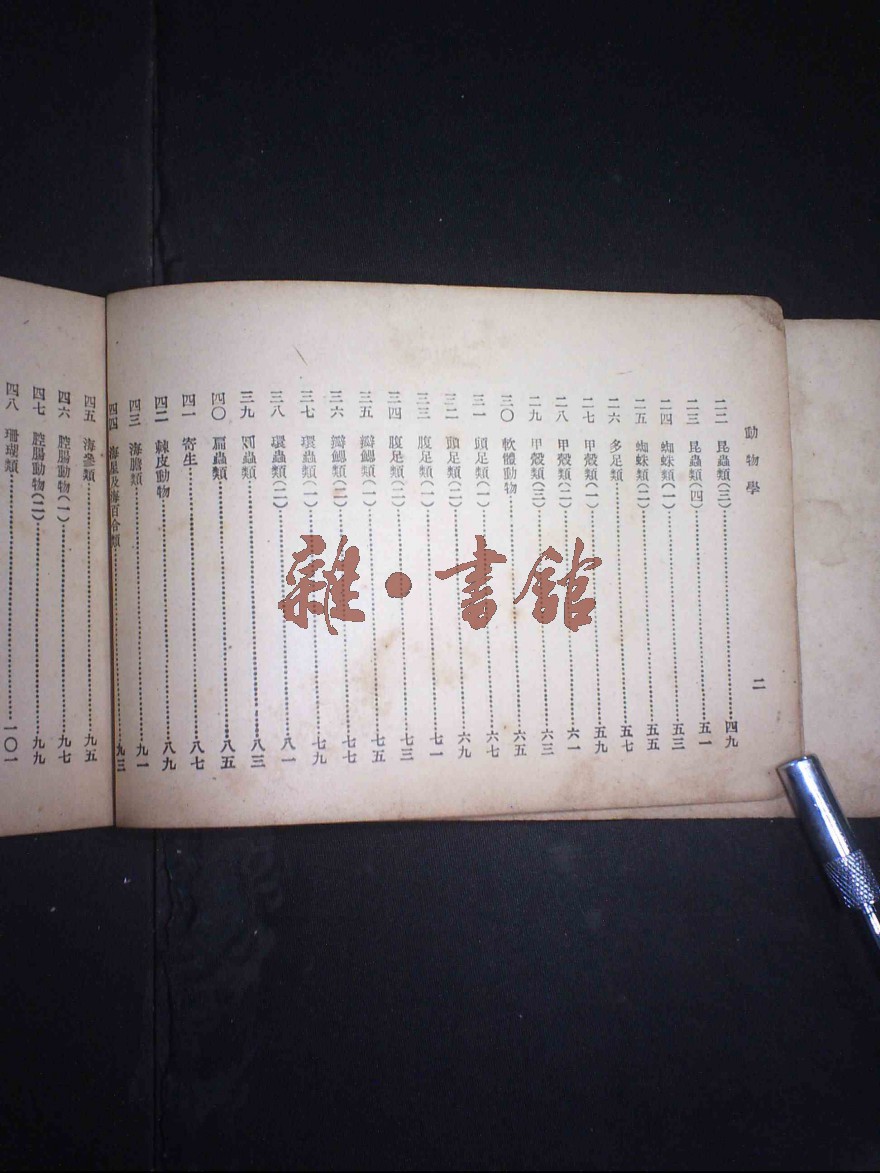 動物學
二
二二 昆蟲類(三)⋯⋯四九
二三 昆蟲類(四)⋯⋯五一
二四 蜘蛛類(一)⋯⋯五三
二五 蜘蛛類(二)⋯⋯五五
二六 多足類⋯⋯五七
二七 甲殼類(一)⋯⋯五九
二八 甲殼類(二)⋯⋯六一
二九 甲殼類(三)⋯⋯六三
三〇 軟體動物⋯⋯六五
三一 頭足類(一)⋯⋯六七
三二 頭足類(二)⋯⋯六九
三三 腹足類(一)⋯⋯七一
三四 腹足類(二)⋯⋯七三
三五 瓣鰓類(一)⋯⋯七五
三六 瓣鰓類(二)⋯⋯七七
三七 環蟲類(一)⋯⋯七九
三八 環蟲類(二)⋯⋯八一
三九 圓蟲類⋯⋯八三
四〇 扁蟲類⋯⋯八五
四一 寄生⋯⋯八七
四二 棘皮動物⋯⋯八九
四三 海膽類⋯⋯九一
四四 海星及海百合類⋯⋯九三
四五 海參類⋯⋯九五
四六 腔腸動物(一)⋯⋯九七
四七 腔腸動物(二)⋯⋯九九
四八 珊瑚類⋯⋯一〇一
雜·書館